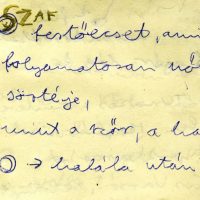 SZAF
festőecset, ami
folyamatosan nő
sörtéje,
mint a szőr, a ha
→ halála után